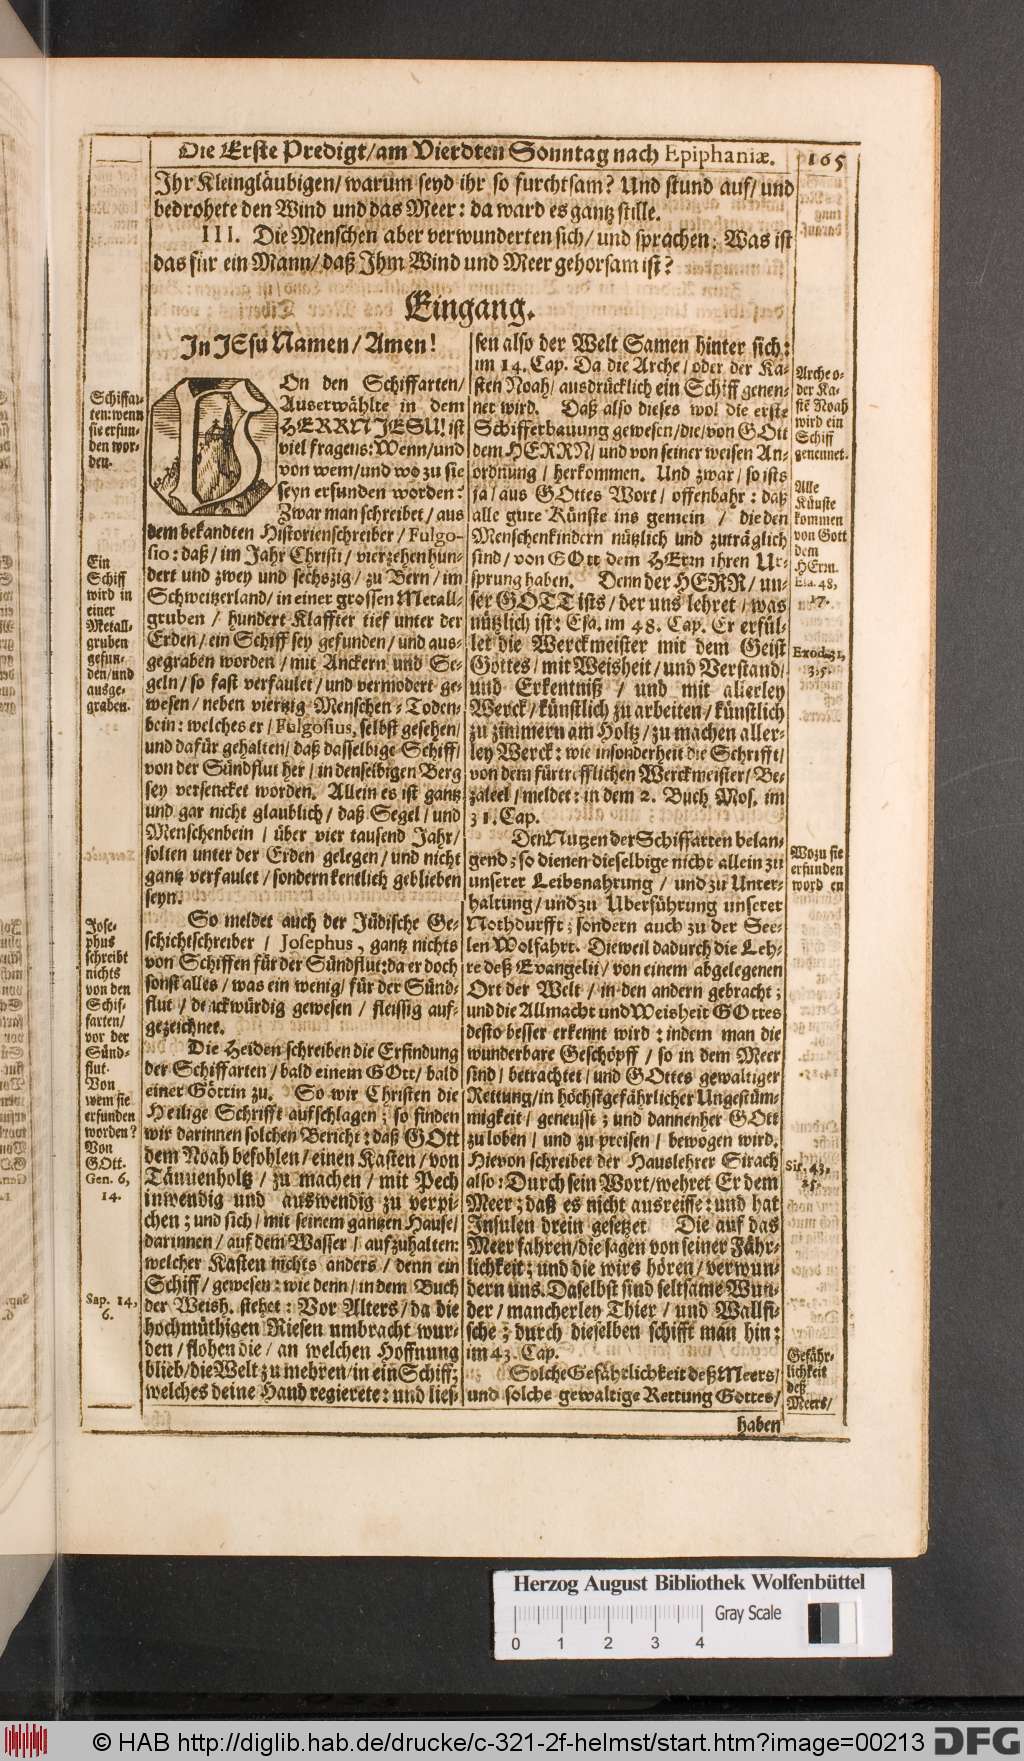 Die Erste Predigt/am Vierdten Sonntag nach Epiphaniæ.
165
Ihr Kleingläubigen/ warum seyd ihr so furchtsam? Und stund auf/ und
bedrohete den Wind und das Meer: da ward es gantz stille.
III. Die Menschen aber verwunderten sich/ und sprachen: Was ist
das für ein Mann/ daß Ihm Wind und Meer gehorsam ist?
Eingang.
In JEsu Namen/ Amen!
VOn den Schiffarten/
Auserwählte in dem
HERRN JESU! ist
viel fragens: Wenn/und
von wem/und wo zu sie
seyn erfunden worden?
Zwar man schreibet/ aus
dem bekandten Historienschreiber/ Fulgo-
sio: daß/ im Jahr Christi/ vierzehenhun-
dert und zwey und sechszig/ zu Bern/ im
Schweitzerland/ in einer grossen Metall-
gruben/ hundert Klaffter tief unter der
Erden/ ein Schiff sey gefunden/ und aus-
gegraben worden/ mit Anckern und Se-
geln/ so fast verfaulet/ und vermodert ge-
wesen/ neben viertzig Menschen-Toden-
bein: welches er/ Fulgosius, selbst gesehen/
und dafür gehalten/ daß dasselbige Schiff/
von der Sündflut her/ in denselbigen Berg
sey versencket worden. Allein es ist gantz
und gar nicht glaublich/ daß Segel/ und
Menschenbein/ über vier tausend Jahr/
solten unter der Erden gelegen/ und nicht
gantz verfaulet/ sondern kentlich geblieben
seyn.
So meldet auch der Jüdische Ge-
schichtschreiber/ Josephus, gantz nichts
von Schiffen für der Sündflut: da er doch
sonst alles/ was ein wenig/ für der Sünd-
flut/ denckwürdig gewesen/ fleissig auf-
gezeichnet.
Die Heiden schreiben die Erfindung
der Schiffarten/ bald einem GOtt/ bald
einer Göttin zu. So wir Christen die
Heilige Schrifft aufschlagen; so finden
wir darinnen solchen Bericht: daß GOtt
dem Noah befohlen/ einen Kasten/ von
Tännenholtz/ zu machen/ mit Pech
inwendig und auswendig zu verpi-
chen; und sich/ mit seinem gantzen Hause/
darinnen/ auf dem Wasser/ aufzuhalten:
welcher Kasten nichts anders/ denn ein
Schiff/ gewesen: wie denn/ in dem Buch
der Weish. stehet: Vor Alters/ da die
hochmüthigen Riesen umbracht wur-
den/ flohen die/ an welchen Hoffnung
blieb/ die Welt zu mehren/ in ein Schiff;
welches deine Hand regierete: und lies-
sen also der Welt Samen hinter sich:
im 14. Cap. Da die Arche/ oder der Ka-
sten Noah/ ausdrücklich ein Schiff genen-
net wird. Daß also dieses wol die erste
Schifferbauung gewesen/ die/ von GOtt
dem HERRN/ und von seiner weisen An-
ordnung/ herkommen. Und zwar/ so ists
ja/ aus GOttes Wort/ offenbahr: daß
alle gute Künste ins gemein/ die den
Menschenkindern nützlich und zuträglich
sind/ von GOtt dem HErrn ihren Ur-
sprung haben. Denn der HERR/ un-
ser GOTT ists/ der uns lehret/ was
nützlich ist: Esa. im 48. Cap. Er erfül-
let die Werckmeister mit dem Geist
Gottes/ mit Weisheit/ und Verstand/
und Erkentniß/ und mit allerley
Werck/ künstlich zu arbeiten/ künstlich
zu zimmern am Holtz/ zu machen aller-
ley Werck: wie insonderheit die Schrifft/
von dem fürtrefflichen Werckmeister/ Be-
zaleel/ meldet: in dem 2. Buch Mos. im
31. Cap.
Den Nutzen der Schiffarten belan-
gend; so dienen dieselbige nicht allein zu
unserer Leibsnahrung/ und zu Unter-
haltung/ und zu Uberführung unserer
Nothdurfft; sondern auch zu der See-
len Wolfahrt. Dieweil dadurch die Leh-
re deß Evangelii/ von einem abgelegenen
Ort der Welt/ in den andern gebracht;
und die Allmacht und Weisheit GOttes
desto besser erkennt wird: indem man die
wunderbare Geschöpff/ so in dem Meer
sind/ betrachtet/ und GOttes gewaltiger
Rettung/ in höchstgefährlicher Ungestüm-
migkeit/ geneusst; und dannenher GOtt
zu loben/ und zu preisen/ bewogen wird.
Hievon schreibet der Hauslehrer Sirach
also: Durch sein Wort/ wehret Er dem
Meer; daß es nicht ausreisse: und hat
Insulen drein gesetzet. Die auf das
Meer fahren/ die sagen von seiner Fähr-
lichkeit; und die wirs hören/ verwun-
dern uns. Daselbst sind seltsame Wun-
der/ mancherley Thier/ und Wallfi-
sche; durch dieselben schifft man hin:
im 43. Cap.
Solche Gefährlichkeit deß Meers/
und solche gewaltige Rettung Gottes/
haben
Schiffar-
ten: wenn
sie erfun-
den wor-
den.
Ein
Schiff
wird in
einer
Metall-
gruben
gefun-
den/und
ausge-
graben.
Jose-
phus
schreibt
nichts
von den
Schif-
farten/
vor der
Sünd-
flut.
Von
wem sie
erfunden
worden?
Von
GOtt.
Gen. 6,
14.
Sap. 14,
6.
Arche o-
der Ka-
stē Noah
wird ein
Schiff
genennet.
Alle
Künste
kommen
von Gott
dem
HErrn.
Esa. 48,
17.
Exod. 31,
3. 5.
Wozu sie
erfunden
worden
Sir. 43,
25.
Gefähr-
lichkeit
deß
Meers/
Herzog August Bibliothek Wolfenbüttel
Gray Scale
0 1 2 3 4
© HAB http://diglib.hab.de/drucke/c-321-2f-helmst/start.htm?image=00213
DFG